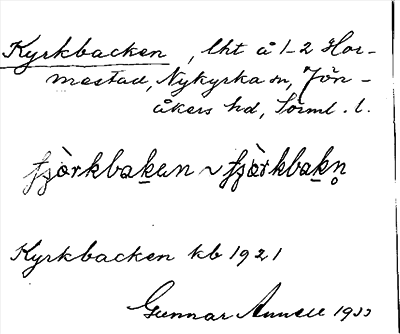 Kyrkbacken, lht å 1-2 Hor-
mestad, Nykyrka sn, Jön-
åkers hd, Sörml. l.
fjòrkbakan ~ fjòrkbakn̥
Kyrkbacken kb 1921
Gunnar Annell 1933